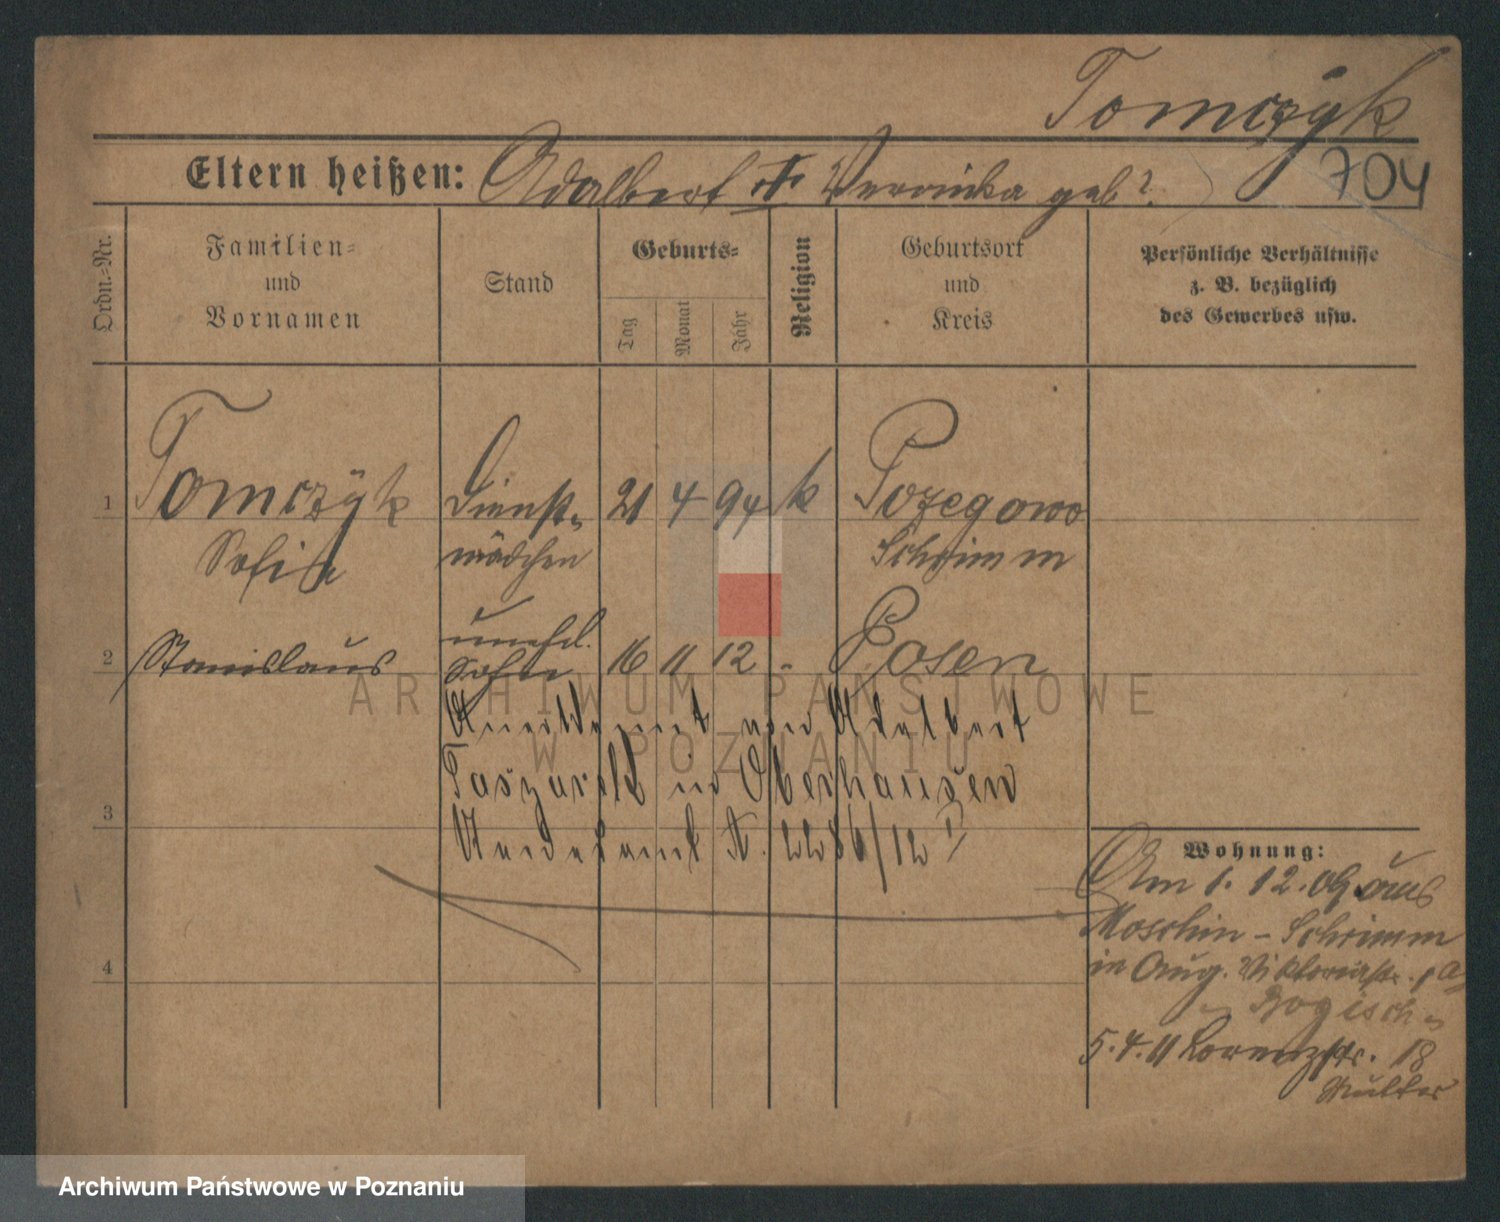 Tomczÿk
704
Eltern heißen: Adalbert u. Veronika geb?
Ordn.-Nr.
Familien-
und
Vornamen
Stand
Geburts-
Tag
Monat
Jahr
Religion
Geburtsort
und
Kreis
Persönliche Verhältnisse
z. B. bezüglich
des Gewerbes usw.
1 Tomczÿk Dienst- 21 4 94 k Pozegowo
Sofie mädchen Schrimm
2 Stanislaus unehel. Sohn 16 11 12 - Posen
Anerkannt von Adalbert
in Oberhausen
3
A. 2286/12
4
Wohnung:
Am 1. 12. 09 aus
Moschin - Schrimm
in Aug. Viktoriastr.
5.4.11 Lorenzstr. 18
Mutter
ARCHIWUM PAŃSTWOWE
W POZNANIU
Archiwum Państwowe w Poznaniu